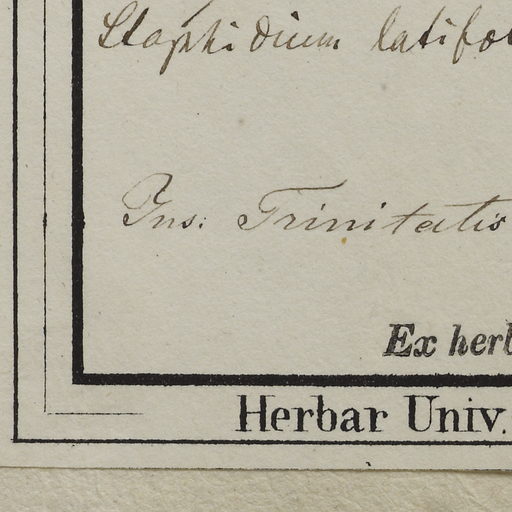 Staphidium latifol
Ins. Trinitatis
Ex herb
Herbar Univ.